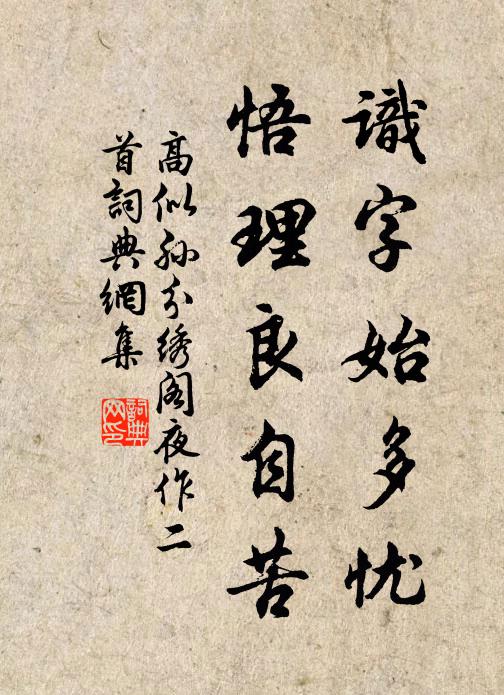 識字始多忧
悟理良自苦
高似孙分绣阁夜作二
首詞典網集
詞典
网印